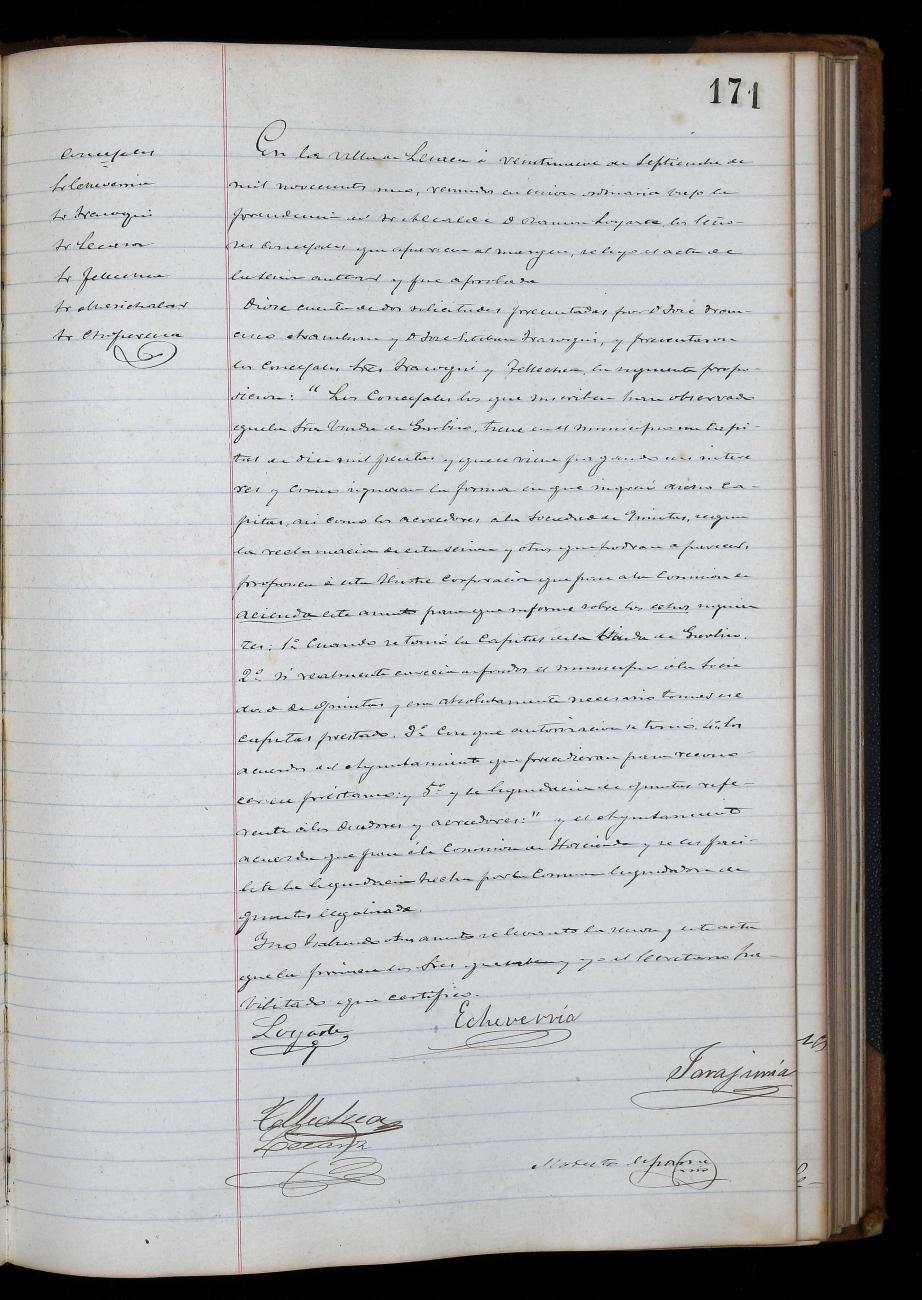 171
Concejales
Sr Echeverria
Sr Irazoqui
Sr Lecuona
Sr Tellechea
Sr Marichalar
Sr Choperena
En la villa de Lesaca á veintinueve de Septiembre de
mil novecientos uno, reunidos en sesion ordinaria bajo la
presidencia del Sr Alcalde D Ramon Loyarte, los Seño-
res Concejales que aparecen al margen, se leyó el acta de
la sesion anterior y fue aprobada
Diose cuenta de dos solicitudes presentadas por D José
y D José Esteban Irazoqui, y presentaron
los Concejales Sres Irazoqui y Tellechea, la siguiente propo-
sicion: " Los Concejales los que suscriben han observado
que la Sra Viuda de Guelbes, tiene en el municipio un Capi-
tal de diez mil pesetas y que se viene pagando sus intere
res y como ignoran la forma en que ingresó dicho Ca-
pital, asi como los acreedores a la Sociedad de Quintas, segun
la reclamacion de esta señora y otros que podran aparecer,
proponen á esta Ilustre Corporación que pase a la Comision de
acienda este asunto para que informe sobre los estos siguien
tes: 1º Cuando se tomó la Capital de la Viuda de
2º Si realmente carecia de fondos el municipio ó la Socie
dad de Quintas y era absolutamente necesario tomar ese
capital prestado. 3º Con que autorizacion se tomó, los
acuerdos del Ayuntamiento que precedieran para recono-
cer ese préstamo: y 5º y la liquidacion de Quintas refe-
rente á los deudores y acreedores:" y el Ayuntamiento
acuerda que pase á la Comision de Hacienda y se les faci-
lite la liquidacion hecha por la Comision liquidadora de
Quintas legalizada.
Y no habiendo otro asunto se levantó la sesion y esta acta
que la firman los Sres que saben y yo el Secretario ha-
bilitado que certifico.
Loyarte
Echeverría
Tellechea
Lecuona
Modesto